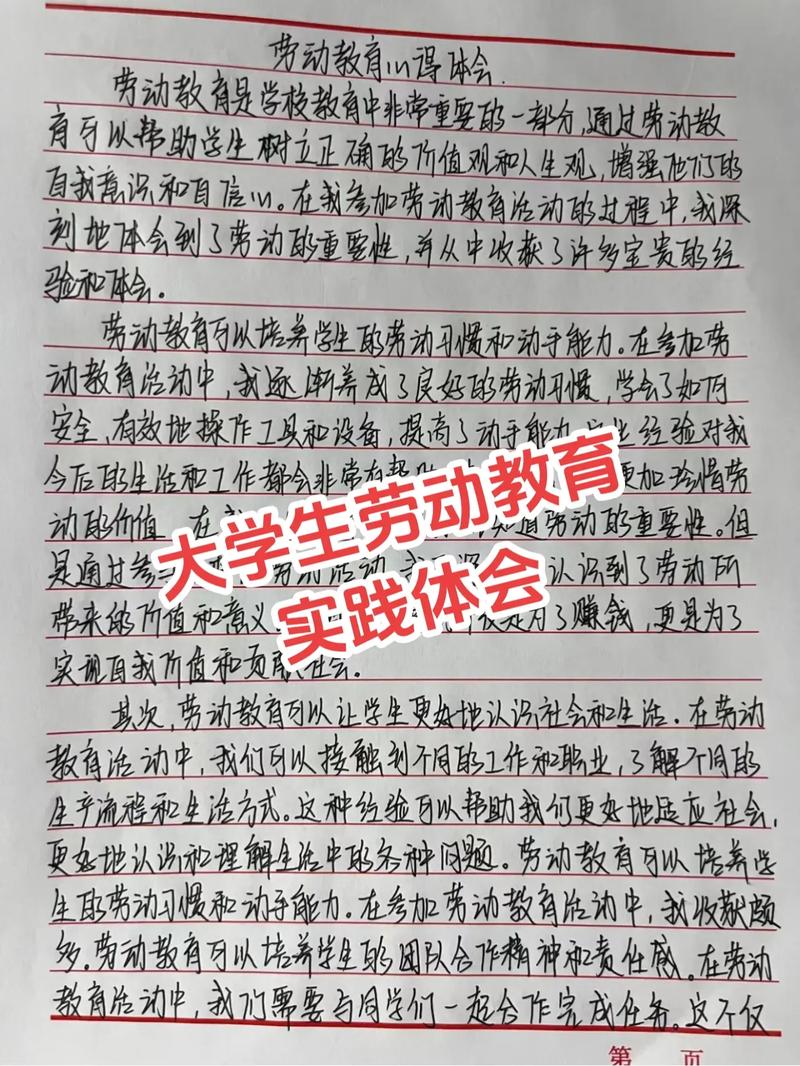 劳动教育心得体会.
劳动教育是学校教育中非常重要的一部分,通过劳动教
育可以帮助学生树立正确的价值观和人生观,增强他们的
自我意识和自信心。在我参加劳动教育活动的过程中,我深
刻地体会到了劳动的重要性,并从中收获了许多宝贵的经
验和体会。
劳动教育可以培养学生的劳动习惯和动手能力。在参加劳
动教育活动中,我逐渐养成了良好的劳动习惯,学会了如何
安全、有效地操作工具和设备,提高了动手能力 经验对我
今后的生活和工作都会非常有 更加珍惜劳
动的价值 在 知道劳动的重要性。但
是通过参 劳动活动 认识到了劳动所
带来的价值和意义 是为了赚钱,更是为了
实现自我价值和贡献社会。
大学生劳动教育
实践体会
其次,劳动教育可以让学生更好地认识社会和生活。在劳动
教育活动中,我们可以接触到不同的工作和职业,了解不同的
生产流程和生活方式。这种经验可以帮助我们更好地适应社会,
更好地认识和理解生活中的各种问题。劳动教育可以培养学
生的劳动习惯和动手能力。在参加劳动教育活动中,我收获颇
多。劳动教育可以培养学生的团队合作精神和责任感。在劳动
教育活动中,我们需要与同学们一起合作完成任务。这不仅
第 页